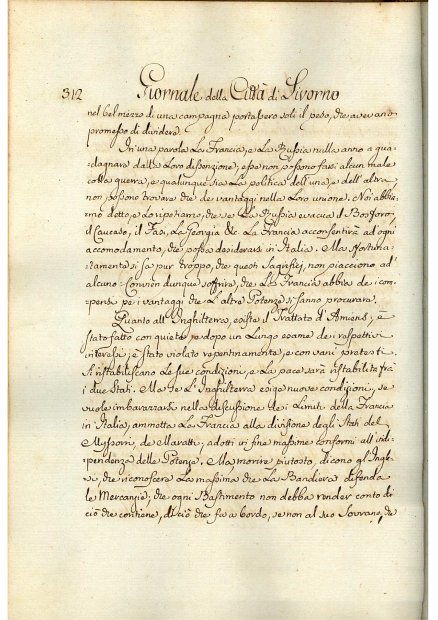 312 Giornale della Città di Livorno
nel bel mezzo di una campagna portassero soli il peso, che avevano
promesso di dividere.
In una parola La Francia, e La Russia nulla anno a gua-
dagnare dalla Loro dissenzione; esse non possono farsi alcun male
colla guerra, e qualunque sia La politica dell'una, e dell'altra
non possono trovare che de vantaggi nella Loro unione. Noi abbia-
mo detto, e Lo ripetiamo, che se La Russia evacua il Bosforo,
il Caucaso, il Fasi, La Georgia &c La Francia acconsentirà ad ogni
accomodamento, che possa desiderarsi in Italia. Ma sfortuna-
tamente si sa pur troppo, che questi Sagrifizj, non piacciono ad
alcuno: Convien dunque soffrire, che La Francia abbia de com-
pensi pe i vantaggi che L'altre Potenze si fanno procurare.
Quanto all'Inghilterra, esiste il Trattato d'Amiens; è
stato fatto con quiete, e dopo un Lungo esame dei respettivi
interessi; è stato violato repentinamente, e con vani pretesti.
Si ristabiliscano Le sue condizioni, e La pace sarà ristabilita fra
i due Stati. Ma se L'Inghilterra esige nuove condizioni, se
vuole imbarazzarsi nella discussione dei Limiti della Francia
in Italia, ammetta La Francia alla divisione degli Stati del
Myssour, de Maratti; adotti in fine massime conformi all'indi-
pendenza delle Potenze. Ma morire piutosto, dicono gl'Ingle-
si, che riconoscere La massima che La Bandiera difenda
le Mercanzie; che ogni Bastimento non debba render conto di
ciò che contiene, di ciò che fa a bordo, se non al suo Sovrano, che